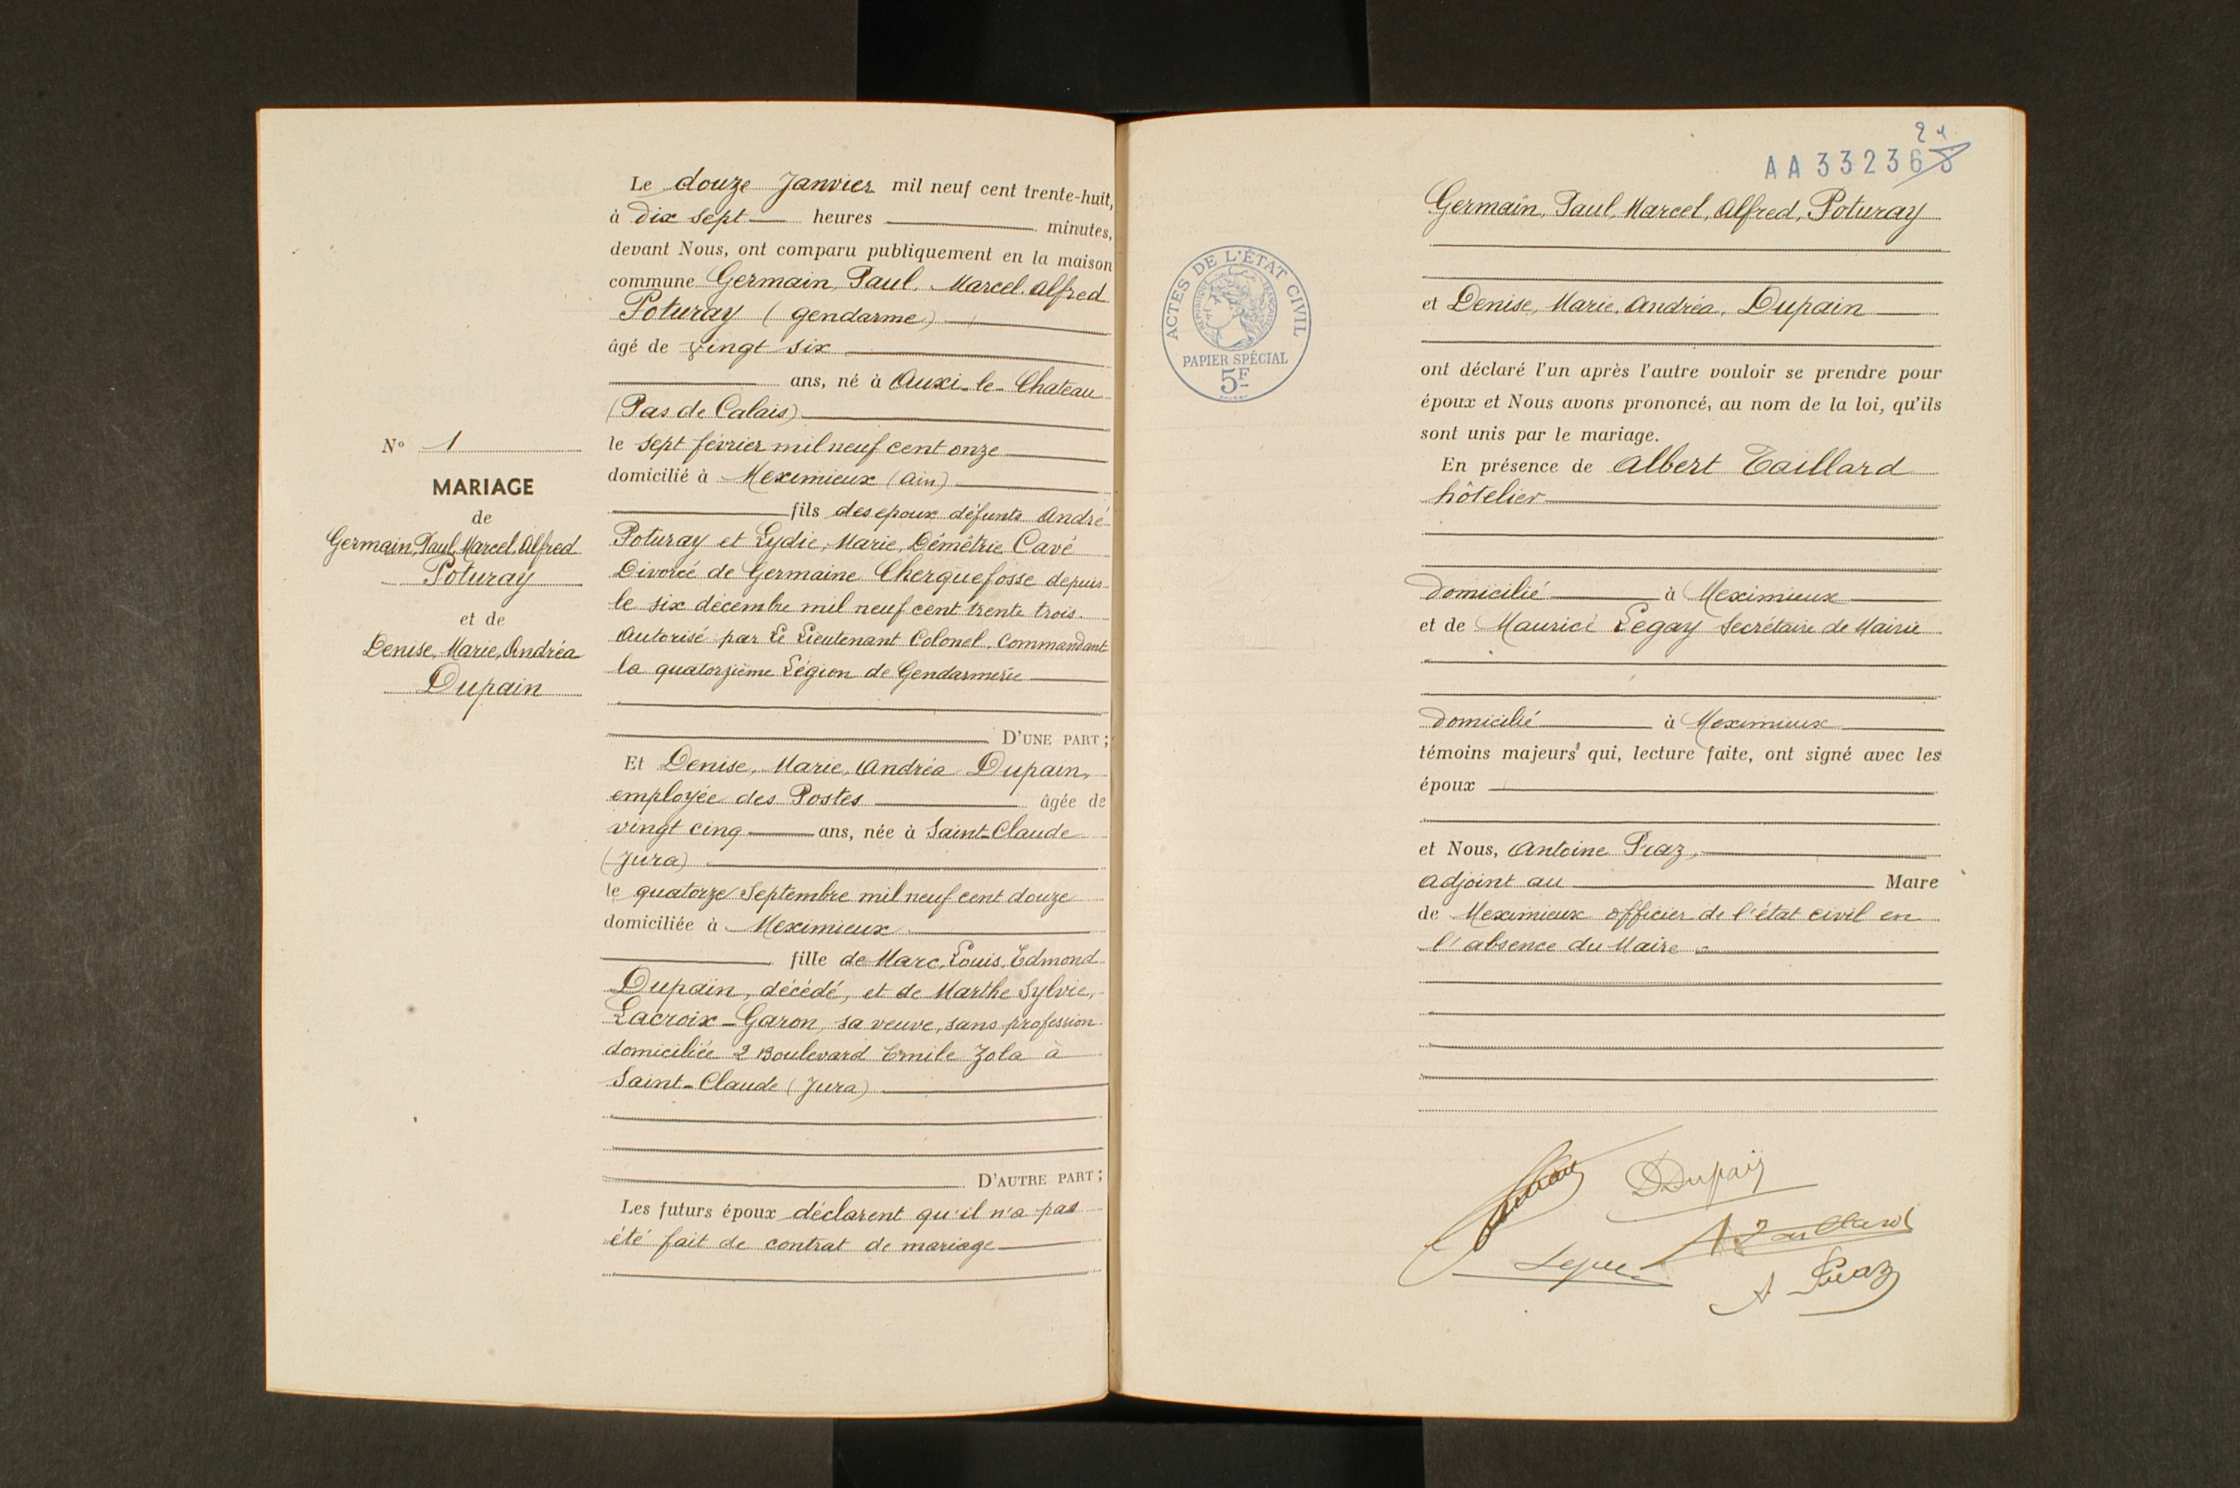 N° 1
MARIAGE
de
Germain, Paul, Marcel, Alfred
Poturay
et de
Denise, Marie, Andréa
Dupain
Le douze Janvier mil neuf cent trente-huit,
à Dix sept heures minutes,
devant Nous, ont comparu publiquement en la maison
commune Germain, Paul, Marcel, Alfred
Poturay (gendarme)
âgé de vingt six
ans, né à Auxi-le-Chateau
(Pas de Calais)
le sept février mil neuf cent onze
domicilié à Meximieux (Ain)
fils des epoux défunts André
Poturay et Lydie, Marie, Démétrie Cavé
Divorcé de Germaine Cherquefosse depuis
le six décembre mil neuf cent trente trois.
Autorisé par Le Lieutenant Colonel, Commandant
la quatorzième Légion de Gendarmerie
D'UNE PART;
Et Denise, Marie, Andréa Dupain,
employée des Postes âgée de
vingt cinq ans, née à Saint-Claude
(Jura)
le quatorze Septembre mil neuf cent douze
domiciliée à Meximieux
fille de Marc, Louis, Edmond
Dupain, décédé, et de Marthe Sylvie,
Lacroix-Garon, sa veuve, sans profession
domiciliée 2 Boulevard Emile Zola à
Saint-Claude (Jura)
D'AUTRE PART;
Les futurs époux déclarent qu'il n'a pas
été fait de contrat de mariage
AA 33236
Germain, Paul, Marcel, Alfred, Poturay
et Denise, Marie, Andréa, Dupain
ont déclaré l'un après l'autre vouloir se prendre pour
époux et Nous avons prononcé, au nom de la loi, qu'ils
sont unis par le mariage.
En présence de Albert Taillard
hôtelier
domicilié à Meximieux
et de Maurice Legay Secrétaire de Mairie
domicilié à Meximieux
témoins majeurs qui, lecture faite, ont signé avec les
époux
et Nous, Antoine Praz,
adjoint au Maire
de Meximieux officier de l'état civil en
l'absence du Maire
ACTES DE L'ÉTAT CIVIL
RÉPUBLIQUE FRANÇAISE
PAPIER SPÉCIAL
5F
DDupain
A Taillard
A Praz